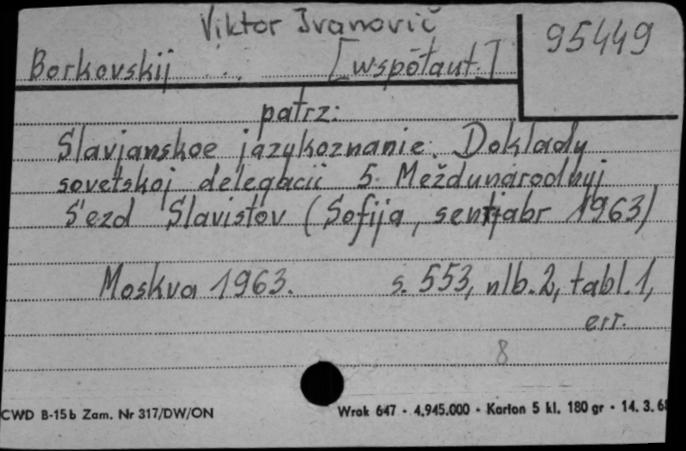 Viktor Ivanovič
95449
Borkovskij [współaut.]
patrz:
Slavjanskoe jazykoznanie. Doklady
sovetskoj delegacii 5. Meždunarodnyj
S'ezd Slavistov (Sofija, sentjabr 1963)
Moskva 1963. s. 553, nlb. 2, tabl. 1,
err.
8
CWD B-15b Zam. Nr 317/DW/ON
Wrok 647 - 4.945.000 - Karton 5 kl. 180 gr - 14. 3. 6